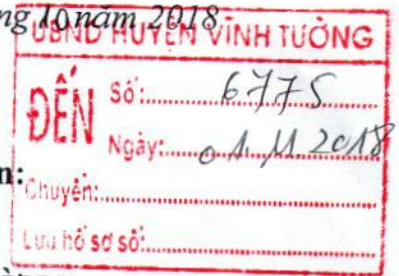 ng 10 năm 2018
UBND HUYỆN VĨNH TƯỜNG
ĐẾN
Số: 6775
Ngày: 01.11.2018
n:
Chuyển:
Lưu hồ sơ số: